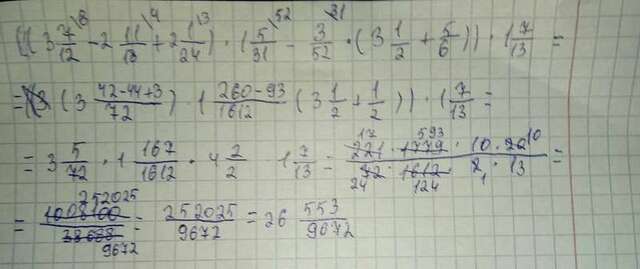 ((3 7/12 \6 - 2 11/18 \4 + 2 1/24 \3) · (1 5/31 \52 - 3/52 \31 · (3 1/2 + 5/6)) · 1 7/13 =
= (3 42-44+3/72) · (1 260-93/1612 (3 1/2 + 1/2)) · 1 7/13 =
= 3 5/72 · 1 167/1612 · 4 2/2 · 1 7/13 = 221 17 · 1779 593 · 10 · 20 10/72 24 · 1612 124 · 2 1 · 13 =
= 1008100 252025/38688 9672 = 252025/9672 = 26 553/9672